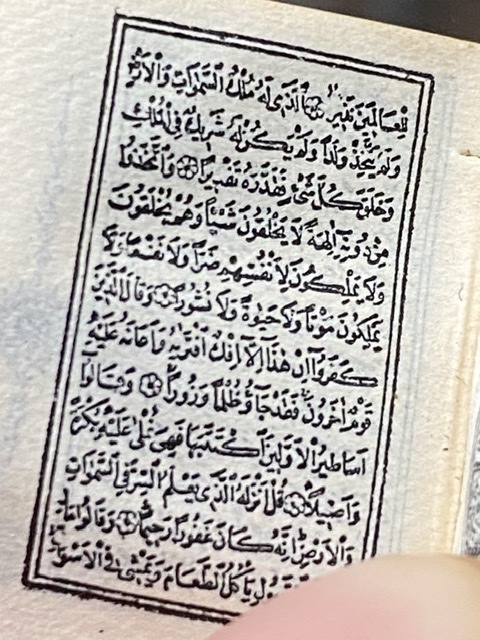 لِلْعَالَمِينَ نَذِيرًاۙ ۝ اَلَّذِى لَهُ مُلْكُ السَّمٰوَاتِ وَالْاَرْضِ
وَلَمْ يَتَّخِذْ وَلَدًا وَلَمْ يَكُنْ لَهُ شَرِيكٌ فِى الْمُلْكِ
وَخَلَقَ كُلَّ شَىْءٍ فَقَدَّرَهُ تَقْدِيرًا ۝ وَاتَّخَذُوا
مِنْ دُونِهِٓ اٰلِهَةً لَا يَخْلُقُونَ شَيْئًا وَهُمْ يُخْلَقُونَ
وَلَا يَمْلِكُونَ لِاَنْفُسِهِمْ ضَرًّا وَلَا نَفْعًا وَلَا
يَمْلِكُونَ مَوْتًا وَلَا حَيٰوةً وَلَا نُشُورًا ۝ وَقَالَ الَّذِينَ
كَفَرُٓوا اِنْ هٰذَٓا اِلَّٓا اِفْكٌ افْتَرٰيهُ وَاَعَانَهُ عَلَيْهِ
قَوْمٌ اٰخَرُونَۚ فَقَدْ جَٓاؤُ ظُلْمًا وَزُورًاۚ ۝ وَقَالُٓوا
اَسَاطِيرُ الْاَوَّلِينَ اكْتَتَبَهَا فَهِىَ تُمْلٰى عَلَيْهِ بُكْرَةً
وَاَصِيلًا ۝ قُلْ اَنْزَلَهُ الَّذِى يَعْلَمُ السِّرَّ فِى السَّمٰوَاتِ
وَالْاَرْضِۜ اِنَّهُ كَانَ غَفُورًا رَحِيمًا ۝ وَقَالُوا مَالِ
يَاْكُلُ الطَّعَامَ وَيَمْشِى فِى الْاَسْوَاقِ